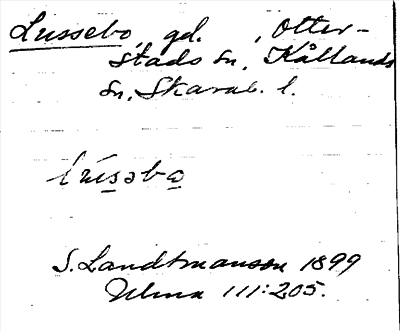 Lussebo, gd. , Otter-
stads sn, Kållands
sn, Skarab. l.
lúsəba
S. Landtmanson 1899
Ulma 111:205.